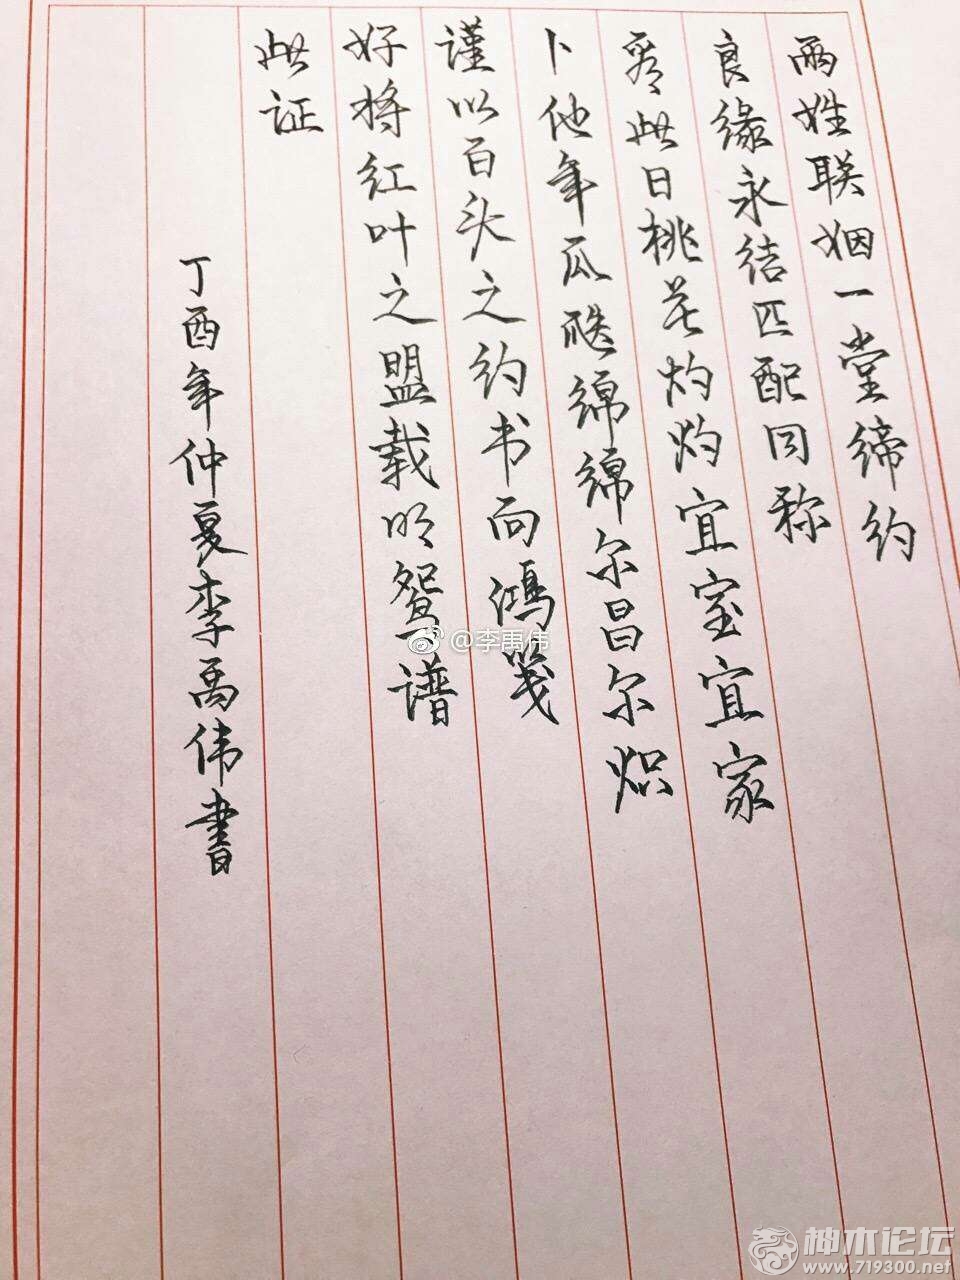 两姓联姻一堂缔约
良缘永结匹配同称
看此日桃花灼灼宜室宜家
卜他年瓜瓞绵绵尔昌尔炽
谨以百头之约书向鸿笺
好将红叶之盟载明鸳谱
此证
丁酉年仲夏李禹伟書
@李禹伟
神木论坛
www.719300.net